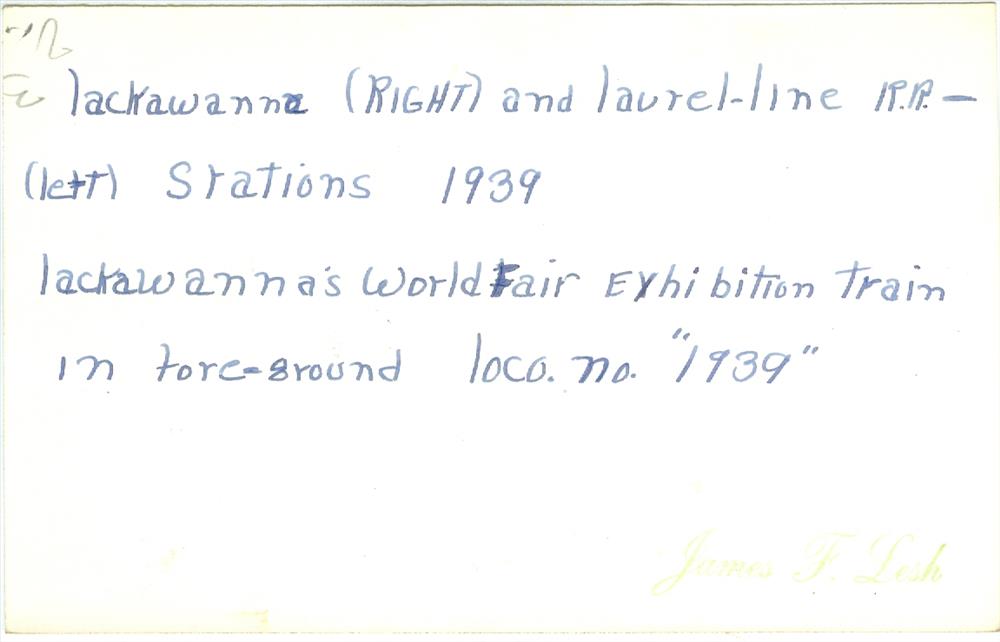 lackawanna (RIGHT) and laurel-line R.R. —
(left) Stations 1939
lackawanna's World Fair Exhibition train
in fore-ground loco. no. "1939"
James F. Lesh